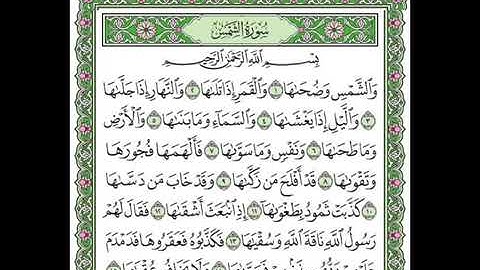 سُورَةُ الشَّمْسِ
بِسْمِ اللَّهِ الرَّحْمَٰنِ الرَّحِيمِ
وَالشَّمْسِ وَضُحَىٰهَا ١ وَالْقَمَرِ إِذَا تَلَىٰهَا ٢ وَالنَّهَارِ إِذَا جَلَّىٰهَا
٣ وَاللَّيْلِ إِذَا يَغْشَىٰهَا ٤ وَالسَّمَاءِ وَمَا بَنَىٰهَا ٥ وَالْأَرْضِ
وَمَا طَحَىٰهَا ٦ وَنَفْسٍ وَمَا سَوَّىٰهَا ٧ فَأَلْهَمَهَا فُجُورَهَا
وَتَقْوَىٰهَا ٨ قَدْ أَفْلَحَ مَن زَكَّىٰهَا ٩ وَقَدْ خَابَ مَن دَسَّىٰهَا
١٠ كَذَّبَتْ ثَمُودُ بِطَغْوَىٰهَا ١١ إِذِ انبَعَثَ أَشْقَىٰهَا ١٢ فَقَالَ لَهُمْ
رَسُولُ اللَّهِ نَاقَةَ اللَّهِ وَسُقْيَىٰهَا ١٣ فَكَذَّبُوهُ فَعَقَرُوهَا فَدَمْدَمَ